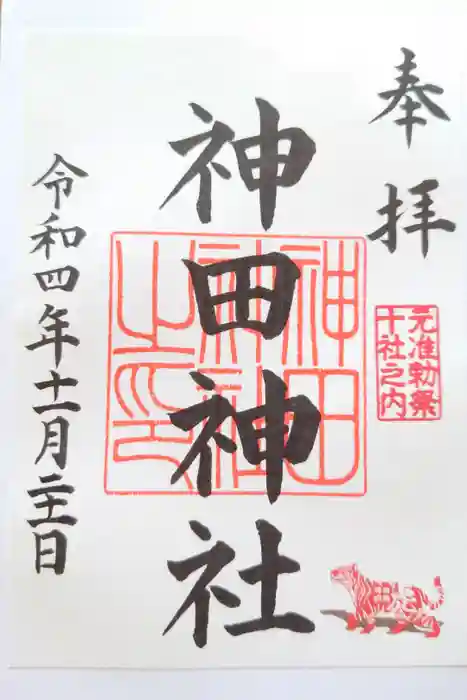 奉拝
元准勅祭
十社之内
神田神社
神田
神社
之印
令和四年十一月二十三日